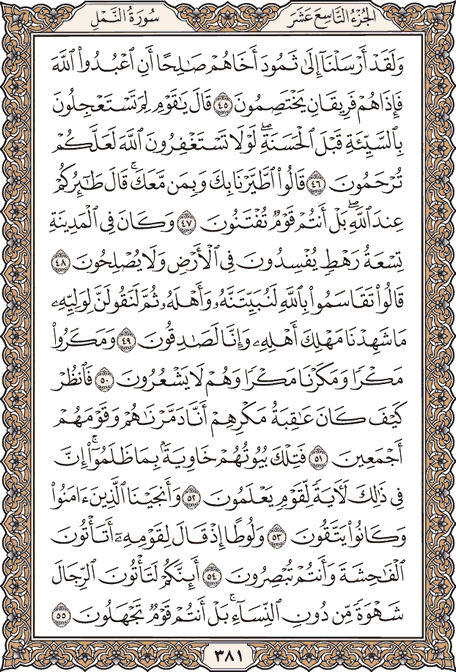 سُورَةُ النَّمْلِ الجُزْءُ التَّاسِعَ عَشَرَ
وَلَقَدْ أَرْسَلْنَآ إِلَىٰ ثَمُودَ أَخَاهُمْ صَٰلِحًا أَنِ ٱعْبُدُوا۟ ٱللَّهَ
فَإِذَا هُمْ فَرِيقَانِ يَخْتَصِمُونَ ٤٥ قَالَ يَٰقَوْمِ لِمَ تَسْتَعْجِلُونَ
بِٱلسَّيِّئَةِ قَبْلَ ٱلْحَسَنَةِ ۖ لَوْلَا تَسْتَغْفِرُونَ ٱللَّهَ لَعَلَّكُمْ
تُرْحَمُونَ ٤٦ قَالُوا۟ ٱطَّيَّرْنَا بِكَ وَبِمَن مَّعَكَ ۚ قَالَ طَٰٓئِرُكُمْ
عِندَ ٱللَّهِ ۖ بَلْ أَنتُمْ قَوْمٌ تُفْتَنُونَ ٤٧ وَكَانَ فِى ٱلْمَدِينَةِ
تِسْعَةُ رَهْطٍ يُفْسِدُونَ فِى ٱلْأَرْضِ وَلَا يُصْلِحُونَ ٤٨
قَالُوا۟ تَقَاسَمُوا۟ بِٱللَّهِ لَنُبَيِّتَنَّهُۥ وَأَهْلَهُۥ ثُمَّ لَنَقُولَنَّ لِوَلِيِّهِۦ
مَا شَهِدْنَا مَهْلِكَ أَهْلِهِۦ وَإِنَّا لَصَٰدِقُونَ ٤٩ وَمَكَرُوا۟
مَكْرًا وَمَكَرْنَا مَكْرًا وَهُمْ لَا يَشْعُرُونَ ٥٠ فَٱنظُرْ
كَيْفَ كَانَ عَٰقِبَةُ مَكْرِهِمْ أَنَّا دَمَّرْنَٰهُمْ وَقَوْمَهُمْ
أَجْمَعِينَ ٥١ فَتِلْكَ بُيُوتُهُمْ خَاوِيَةًۢ بِمَا ظَلَمُوٓا۟ ۗ إِنَّ
فِى ذَٰلِكَ لَءَايَةً لِّقَوْمٍ يَعْلَمُونَ ٥٢ وَأَنجَيْنَا ٱلَّذِينَ ءَامَنُوا۟
وَكَانُوا۟ يَتَّقُونَ ٥٣ وَلُوطًا إِذْ قَالَ لِقَوْمِهِۦٓ أَتَأْتُونَ
ٱلْفَٰحِشَةَ وَأَنتُمْ تُبْصِرُونَ ٥٤ أَئِنَّكُمْ لَتَأْتُونَ ٱلرِّجَالَ
شَهْوَةً مِّن دُونِ ٱلنِّسَآءِ ۚ بَلْ أَنتُمْ قَوْمٌ تَجْهَلُونَ ٥٥
٣٨١